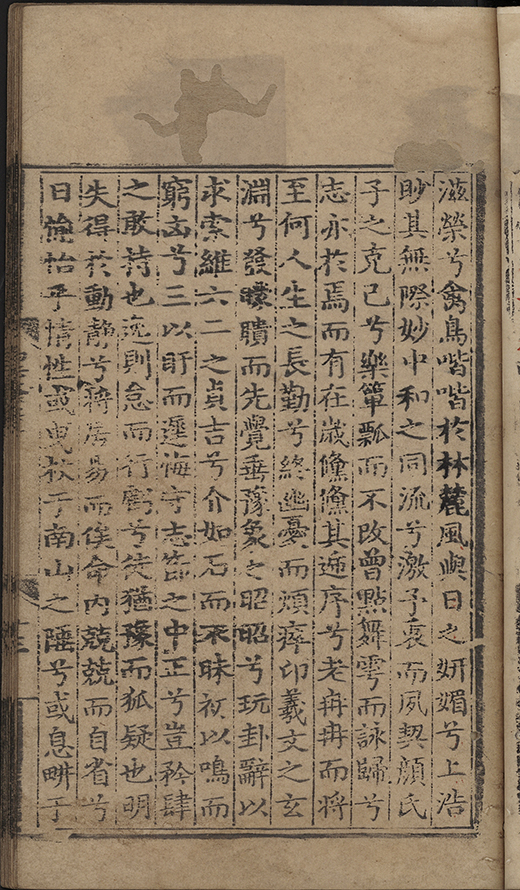 滋榮兮禽鳥喈喈於林麓風與日之妍媚兮上浩
眇其無際妙中和之同流兮激予衷而夙契顔氏
子之克己兮樂簞瓢而不改曾點舞雩而詠歸兮
志亦於焉而有在歲儵儵其遞序兮老冉冉而將
至何人生之長勤兮終幽憂而煩瘁仰羲文之玄
淵兮發曚聵而先覺垂豫象之昭昭兮玩卦辭以
求索維六二之貞吉兮介如石而不昧初以鳴而
窮凶兮三以盱而遲悔守志節之中正兮豈矜肆
之敢持也逸則怠而行虧兮徒猶豫而狐疑也明
失得於動靜兮將居易而俟命內兢兢而自省兮
日愉怡乎情性或曳杖于南山之陲兮或息畊于